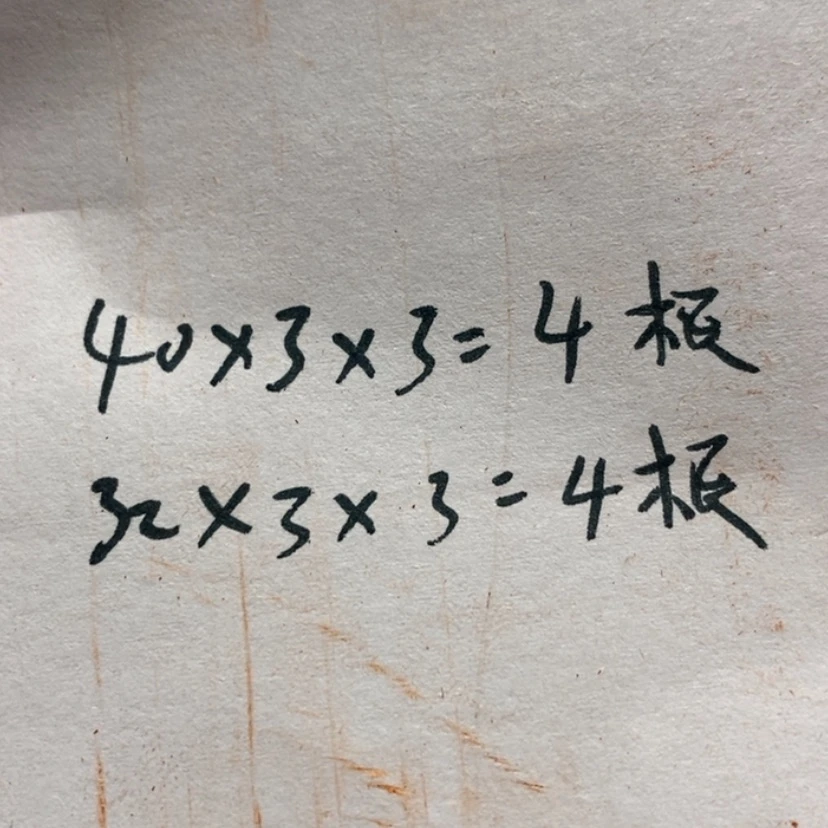 40×3×3=4根
32×3×3=4根